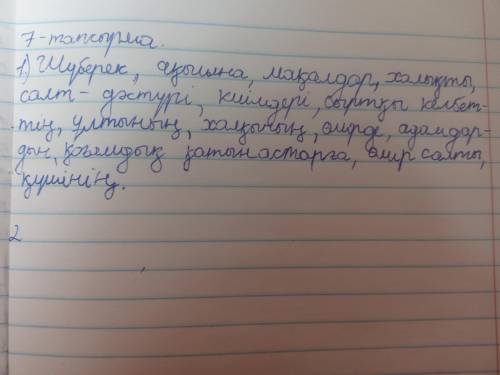 7-тапсырма.
1.) Шүберек, ағынына, мақалдар, халықты,
салт-дәстүрі, киімдері, сыртқы келбет-
тің, ұлтының, халқының, өмірде, адамдар-
дың, қоғамдық қатынастарға, өмір салты,
күшінің.
2